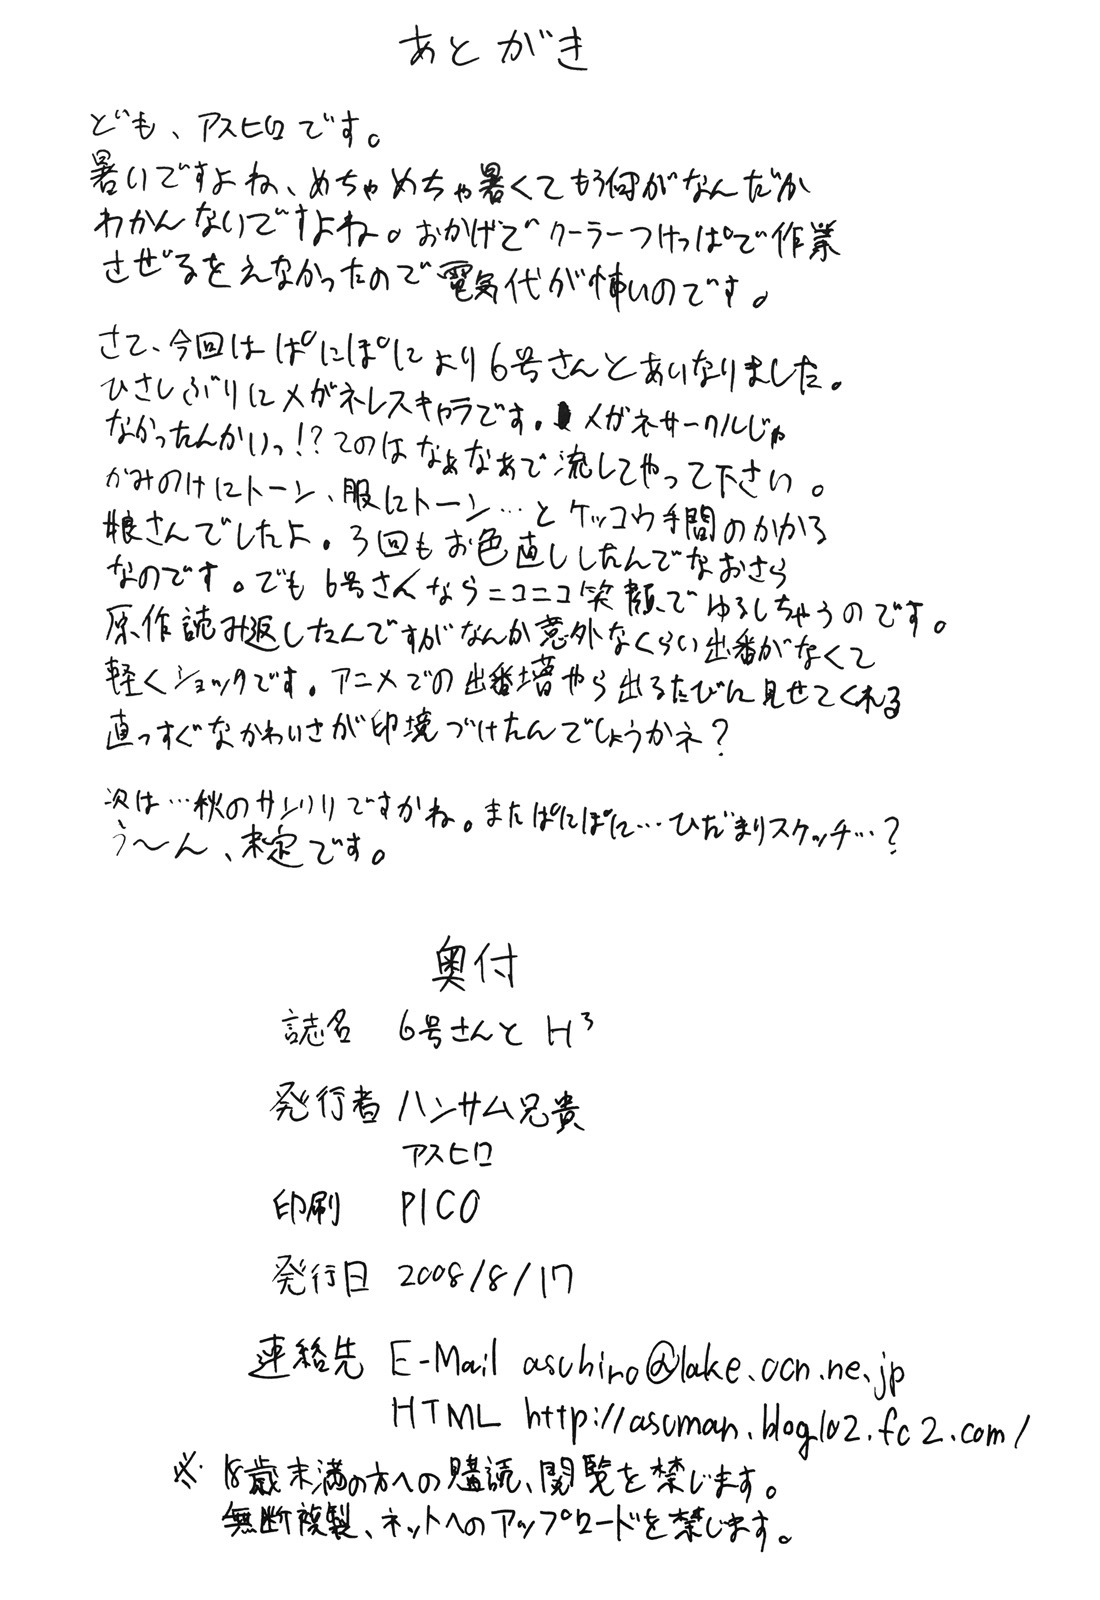 あとがき
ども、アスヒロです。
暑いですよね、めちゃめちゃ暑くてもう何がなんだか
わかんないですよね。おかげでクーラーつけっぱで作業
させ゛るをえなかったので電気代が怖いのです。
さて、今回はぱにぽにより6号さんとあいなりました。
ひさしぶりにメガネレスキャラです。メガネサークルじゃ
なかったんかいっ!?てのはなぁなぁで流してやって下さい。
かみのけにトーン、服にトーン…とケッコウ手間のかかる
娘さんでしたよ。3回もお色直ししたんでなおさら
なのです。でも6号さんならニコニコ笑顔でゆるしちゃうのです。
原作読み返したんですがなんか意外なくらい出番がなくて
軽くショックです。アニメでの出番増やら出るたびに見せてくれる
直っすぐなかわいさが印境づけたんでしょうかネ?
次は…秋のサンクリですかね。またぱにぽに…ひだまりスケッチ…?
う〜ん、未定です。
奥付
誌名 6号さんとH³
発行者 ハンサム兄貴
アスヒロ
印刷 PICO
発行日 2008/8/17
連絡先 E-Mail asuhiro@lake.ocn.ne.jp
HTML http://asuman.blog102.fc2.com/
※18歳未満の方への購読、閲覧を禁じます。
無断複製、ネットへのアップロードを禁じます。